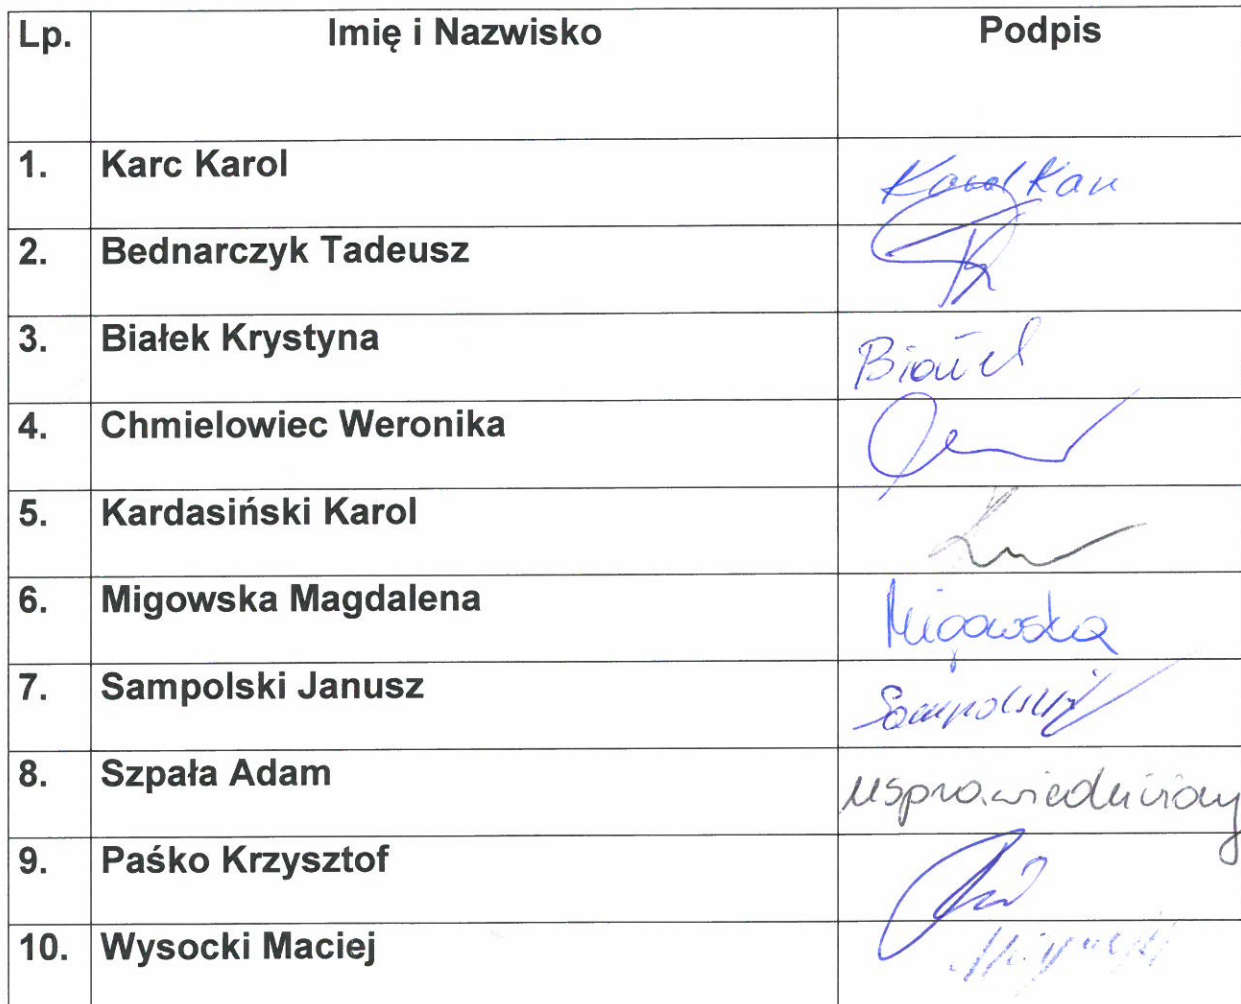 Lp. Imię i Nazwisko Podpis
1. Karc Karol Karol Karc
2. Bednarczyk Tadeusz
3. Białek Krystyna Białek
4. Chmielowiec Weronika
5. Kardasiński Karol
6. Migowska Magdalena Migowska
7. Sampolski Janusz Sampolski
8. Szpała Adam usprawiedliwiony
9. Paśko Krzysztof
10. Wysocki Maciej